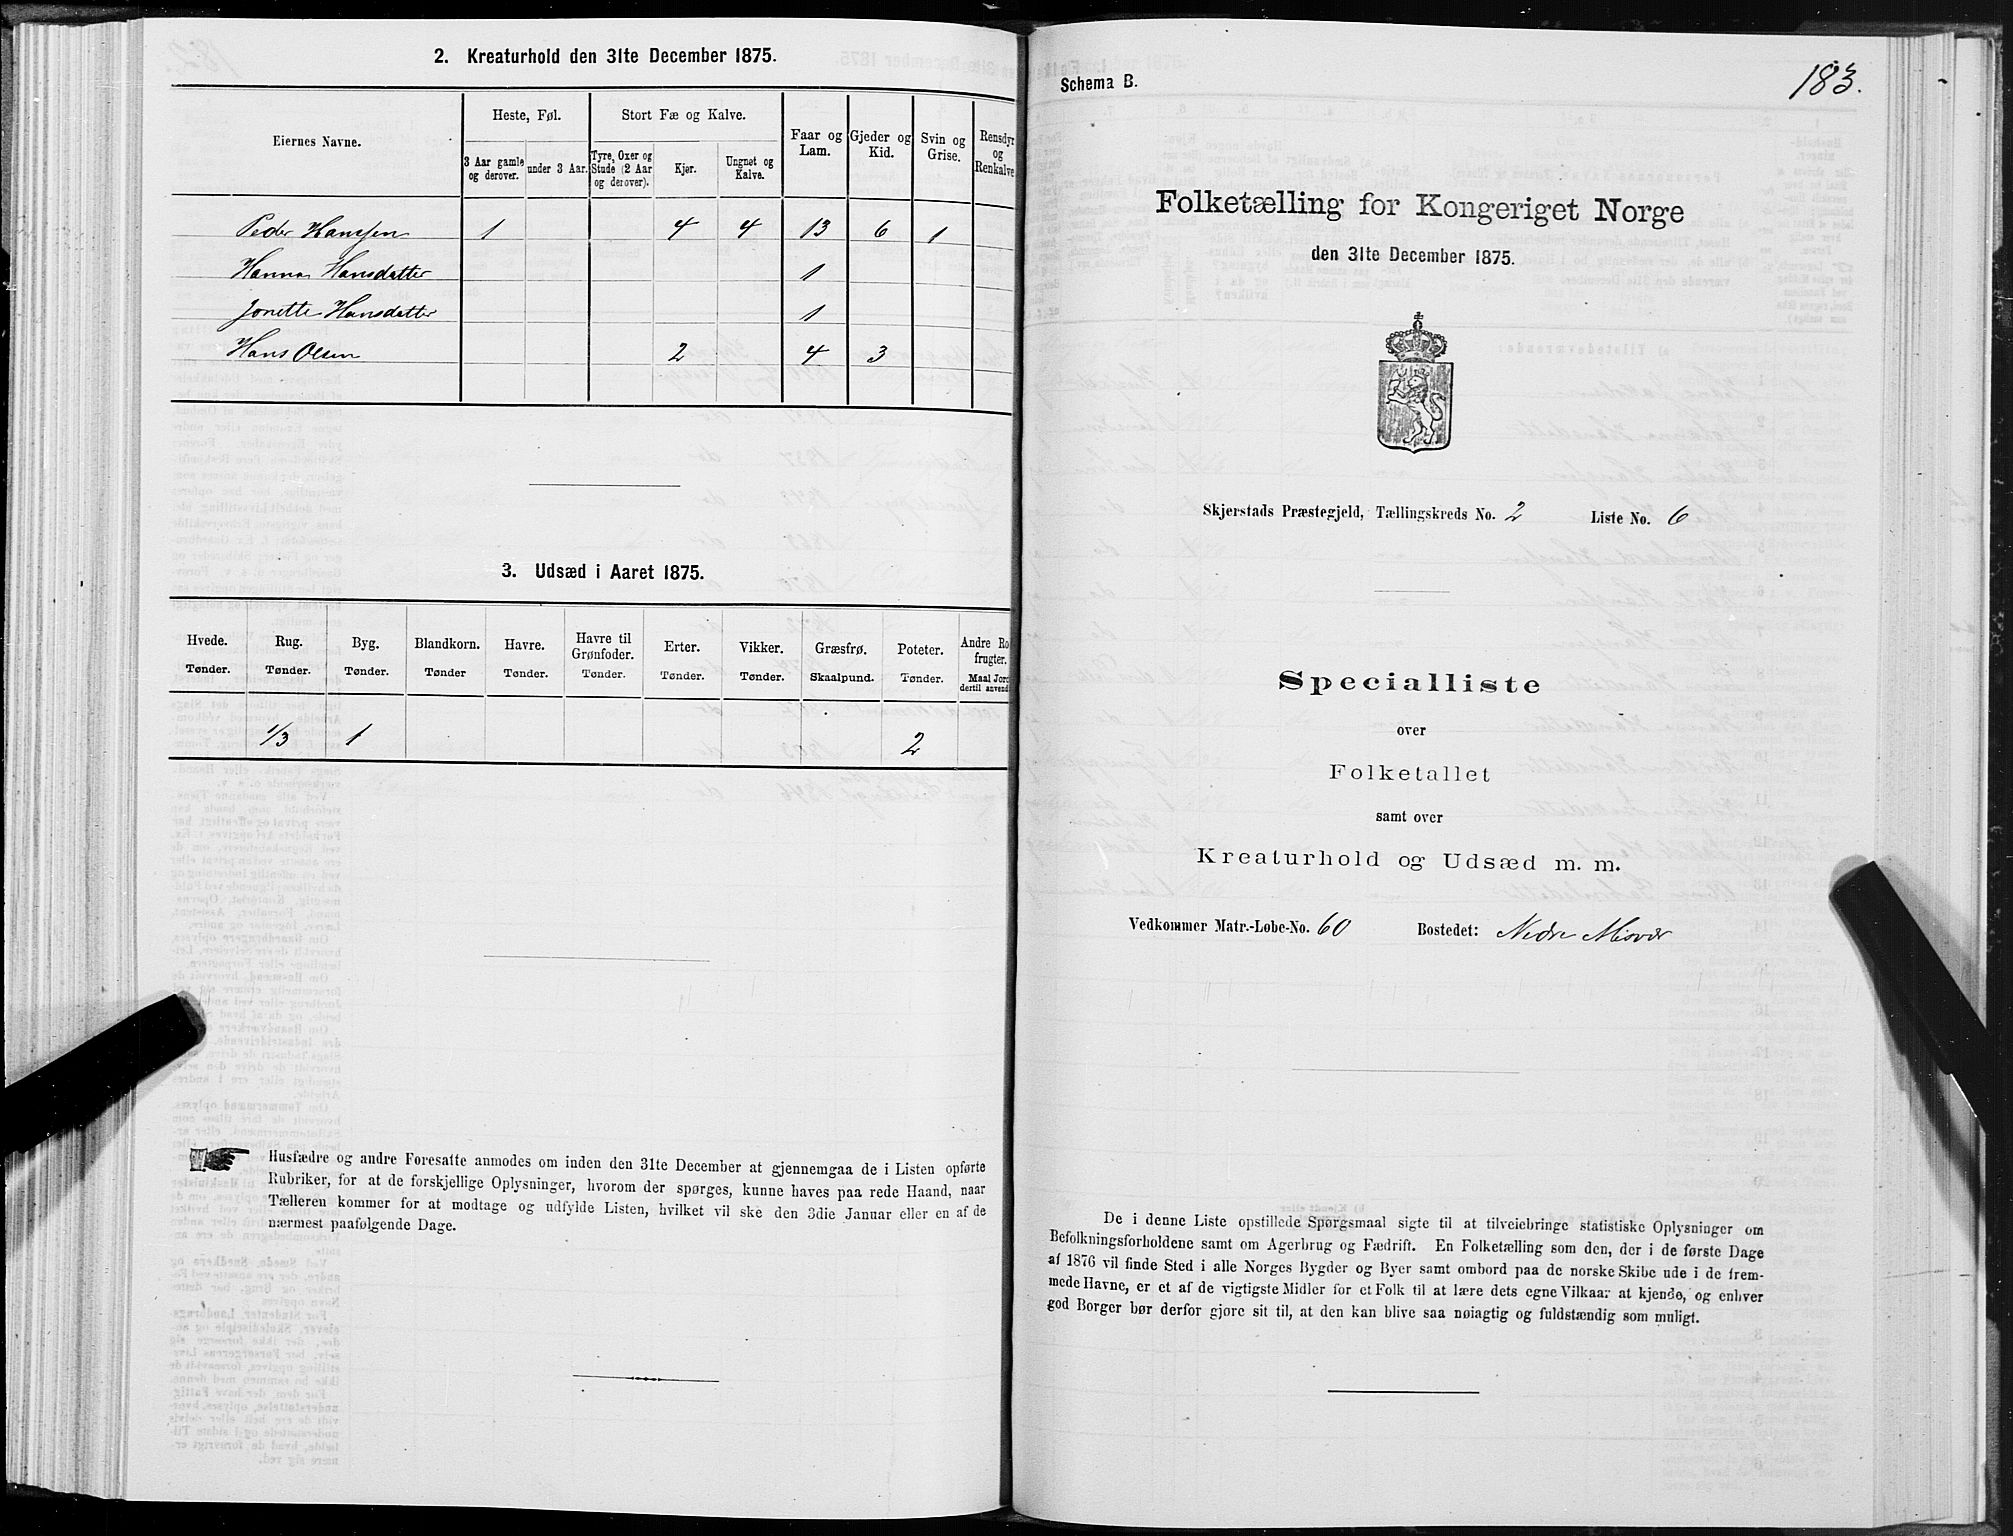 2. Kreaturhold den 31te December 1875.
Eiernes Navne.
Heste, Føl.
Stort Fæ og Kalve.
Faar og Lam.
Gjeder og Kid.
Svin og Grise.
Rensdyr og Renkalve
3 Aar gamle og derover.
under 3 Aar.
Tyre, Oxer og Stude (2 Aar og derover).
Kjør.
Ungnøt og Kalve.
Peder Hansen 1 4 4 13 6 1
Hanna Hansdatter 1
Jonette Hansdatter 1
Hans Olsen 2 4 3
3. Udsæd i Aaret 1875.
Hvede. Rug. Byg. Blandkorn. Havre. Havre til Grønfoder. Erter. Vikker. Græsfrø. Poteter. Andre Ro frugter.
Tønder. Tønder. Tønder. Tønder Tønder. Tønder. Tønder. Tønder. Skaalpund. Tønder. Maal Jord dertil anvend
1/3 1 2
Husfædre og andre Foresatte anmodes om inden den 31te December at gjennemgaa de i Listen opførte
Rubriker, for at de forskjellige Oplysninger, hvorom der spørges, kunne haves paa rede Haand, naar
Tælleren kommer for at modtage og udfylde Listen, hvilket vil ske den 3die Januar eller en af de
nærmest paafølgende Dage.
Schema B.
183.
Folketælling for Kongeriget Norge
den 31te December 1875.
Skjerstads Præstegjeld, Tællingskreds No. 2 Liste No. 6
Specialliste
over
Folketallet
samt over
Kreaturhold og Udsæd m. m.
Vedkommer Matr.-Løbe-No. 60 Bostedet: Nedre Misvær
De i denne Liste opstillede Spørgsmaal sigte til at tilveiebringe statistiske Oplysninger om
Befolkningsforholdene samt om Agerbrug og Fædrift. En Folketælling som den, der i de første Dage
af 1876 vil finde Sted i alle Norges Bygder og Byer samt ombord paa de norske Skibe ude i de frem-
mede Havne, er et af de vigtigste Midler for et Folk til at lære dets egne Vilkaar at kjende, og enhver
god Borger bør derfor gjøre sit til, at den kan blive saa nøiagtig og fuldstændig som muligt.